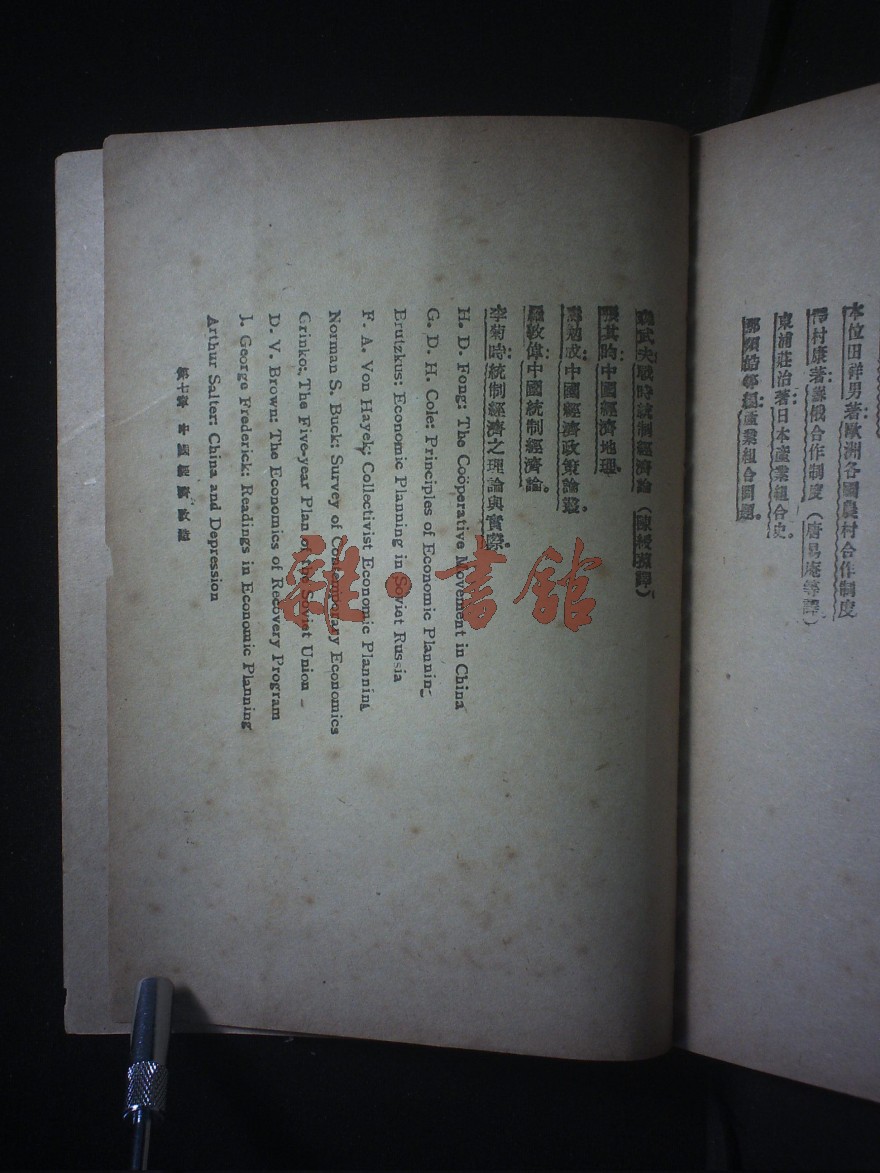 本位田祥男著歐洲各國農村合作制度
澤村康著蘇俄合作制度（唐易庵等譯）
東浦莊治著日本產業組合史。
產業組合問題。
武夫戰時統制經濟論（陳綬蓀譯）
張其昀中國經濟地理。
馬寅初中國經濟政策論叢。
羅敦偉中國統制經濟論。
李菊時統制經濟之理論與實際。
H. D. Fong: The Coöperative Movement in China
G. D. H. Cole: Principles of Economic Planning
Brutzkus: Economic Planning in Soviet Russia
F. A. Von Hayek: Collectivist Economic Planning
Norman S. Buck: Survey of Contemporary Economics
Grinko: The Five-year Plan of the Soviet Union
D. V. Brown: The Economics of Recovery Program
J. George Frederick: Readings in Economic Planning
Arthur Salter: China and Depression
第十章 中國經濟改造
雜·書館